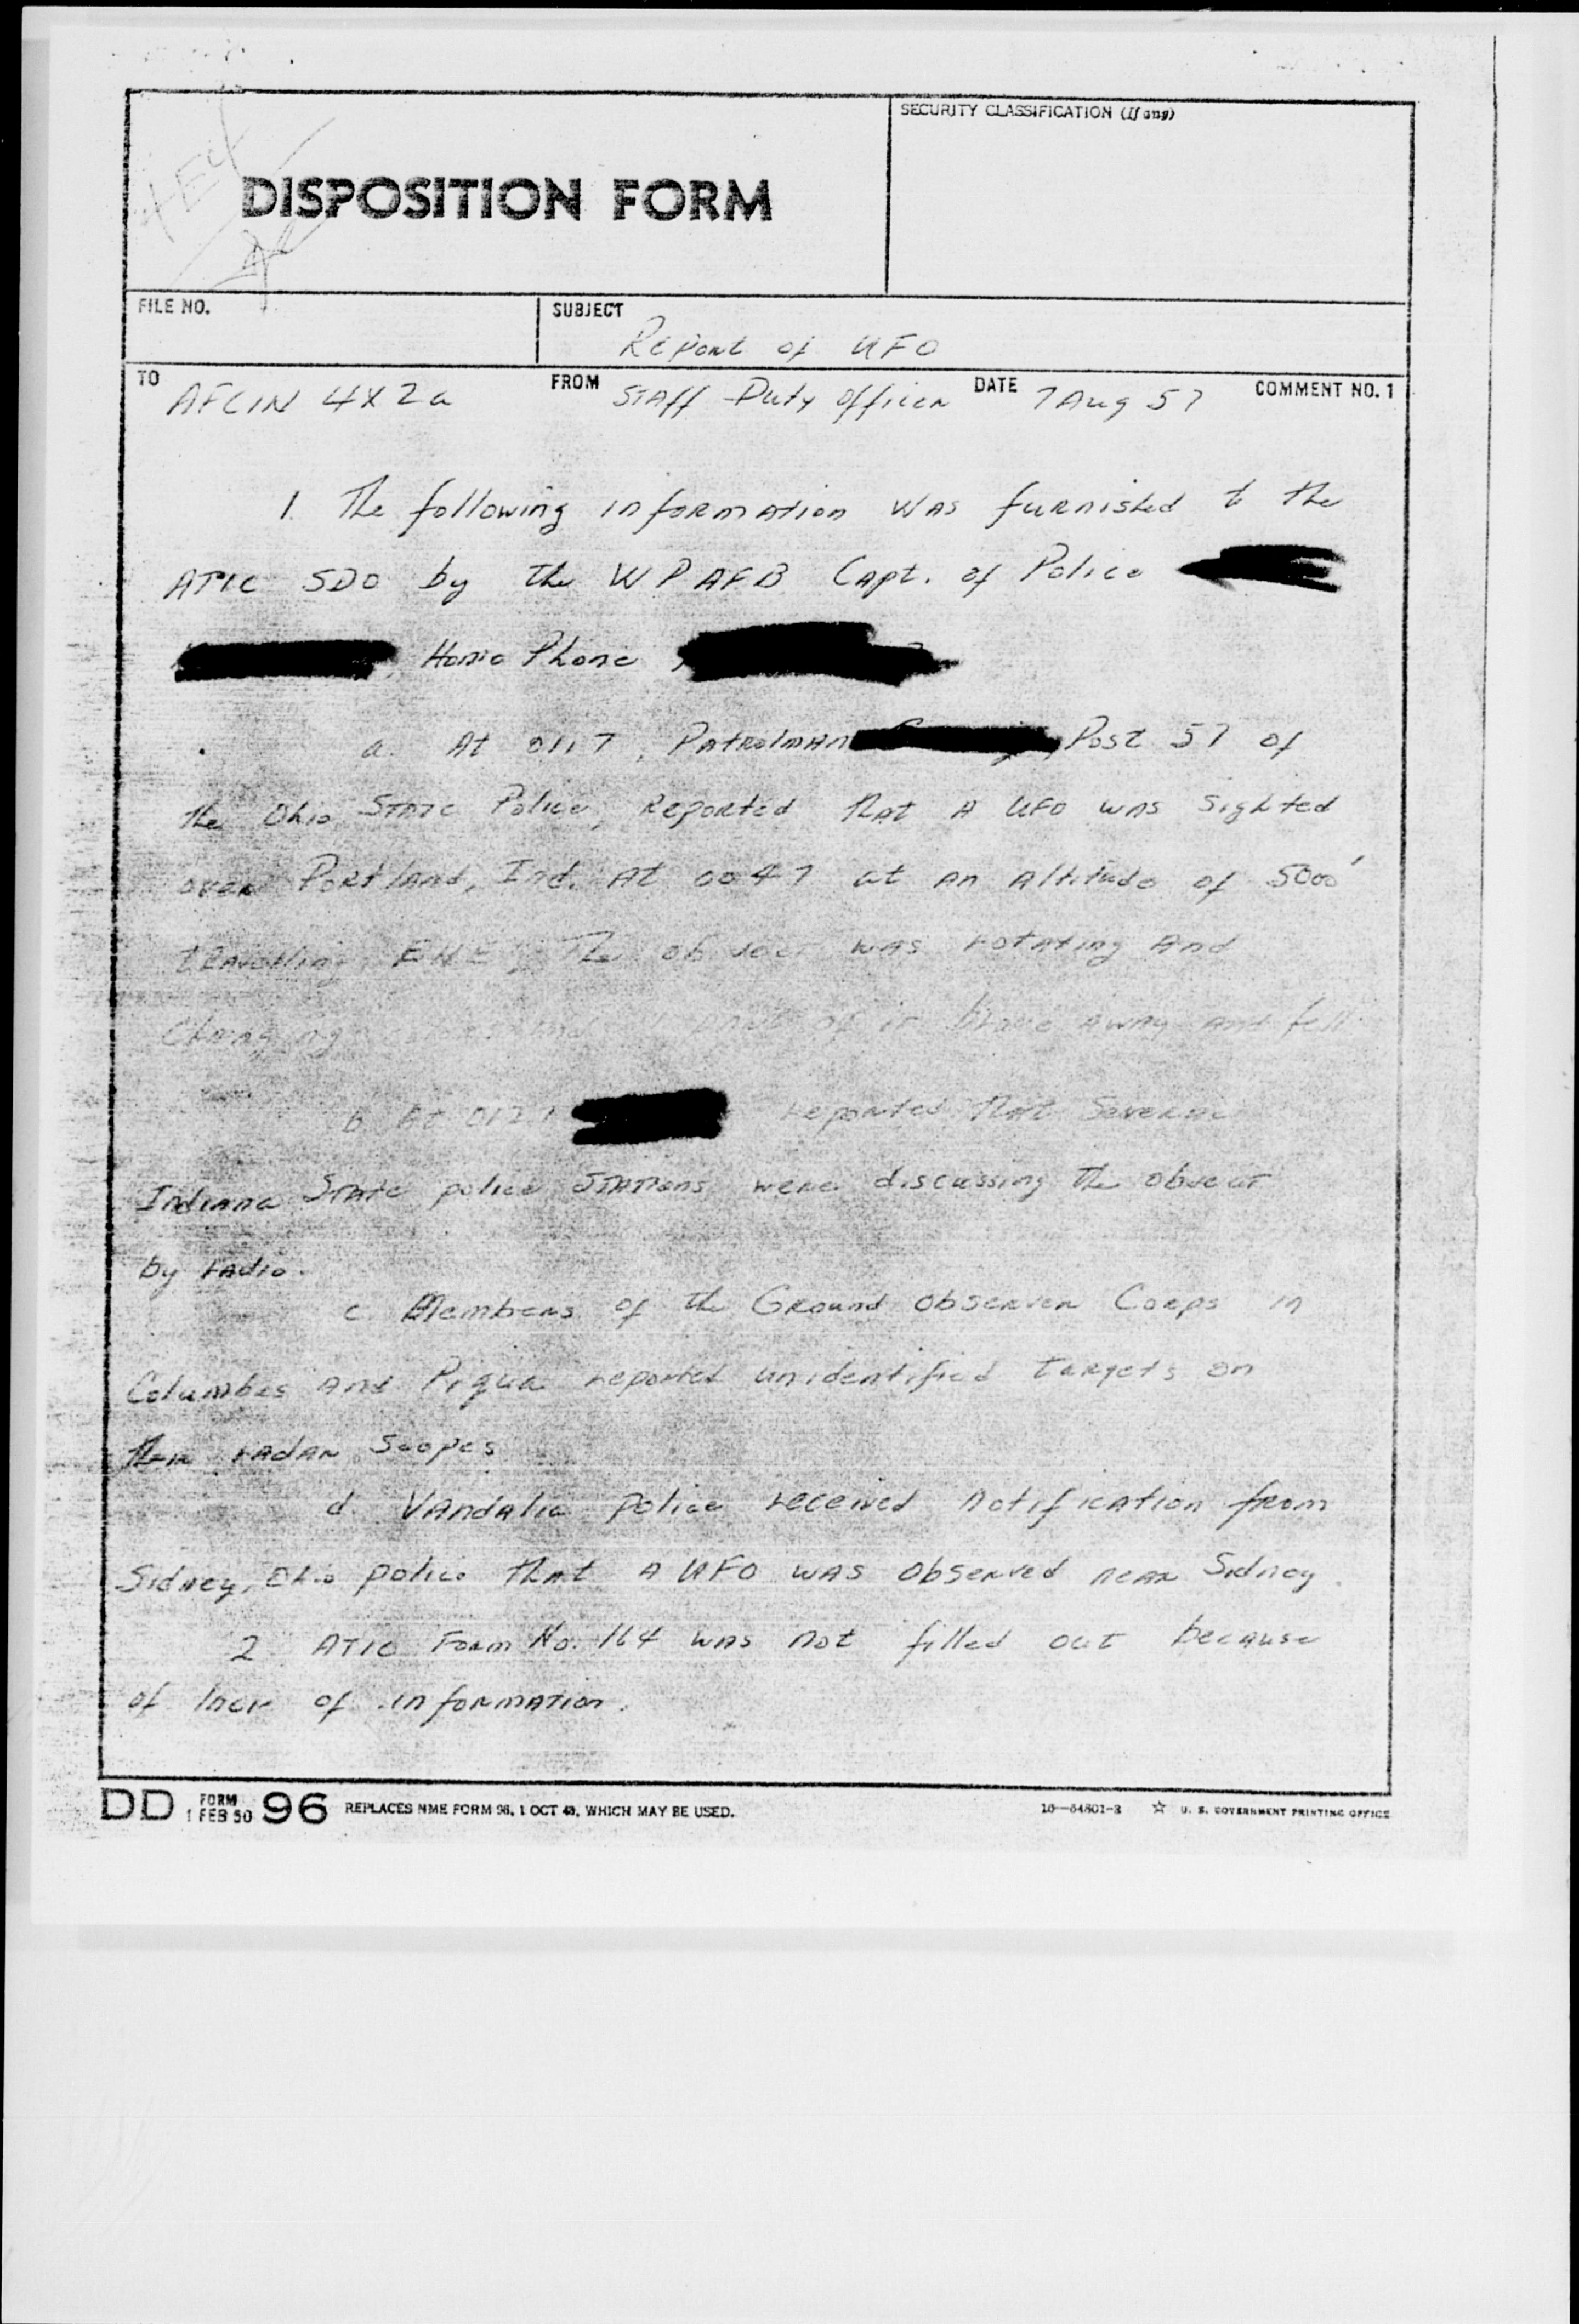 SECURITY CLASSIFICATION (If any)
DISPOSITION FORM
FILE NO.
SUBJECT
Report of UFO
TO
AFCIN 4X2a
FROM
Staff Duty Officer
DATE
7 Aug 57
COMMENT NO. 1
1. The following information was furnished to the
ATIC SDO by the WPAFB Capt. of Police
Home Phone
a. At 0117, Patrolman Post 57 of
the Ohio State Police, Reported that a UFO was sighted
over Portland, Ind. at 0047 at an altitude of 5000'
travelling ENE. The was rotating and
Changing part of it broke away and fell
b. At reported that several
Indiana State police stations were discussing the object
by radio.
c. Members of the Ground Observer Corps in
Columbus and Piqua reported unidentified targets on
their radar scopes
d. Vandalia police received notification from
Sidney, Ohio police that a UFO was observed near Sidney.
2 ATIC Form No. 164 was not filled out because
of lack of information.
DD FORM 1 FEB 50 96 REPLACES NME FORM 96, 1 OCT 48, WHICH MAY BE USED.
16—54801-3 ☆ U. S. GOVERNMENT PRINTING OFFICE